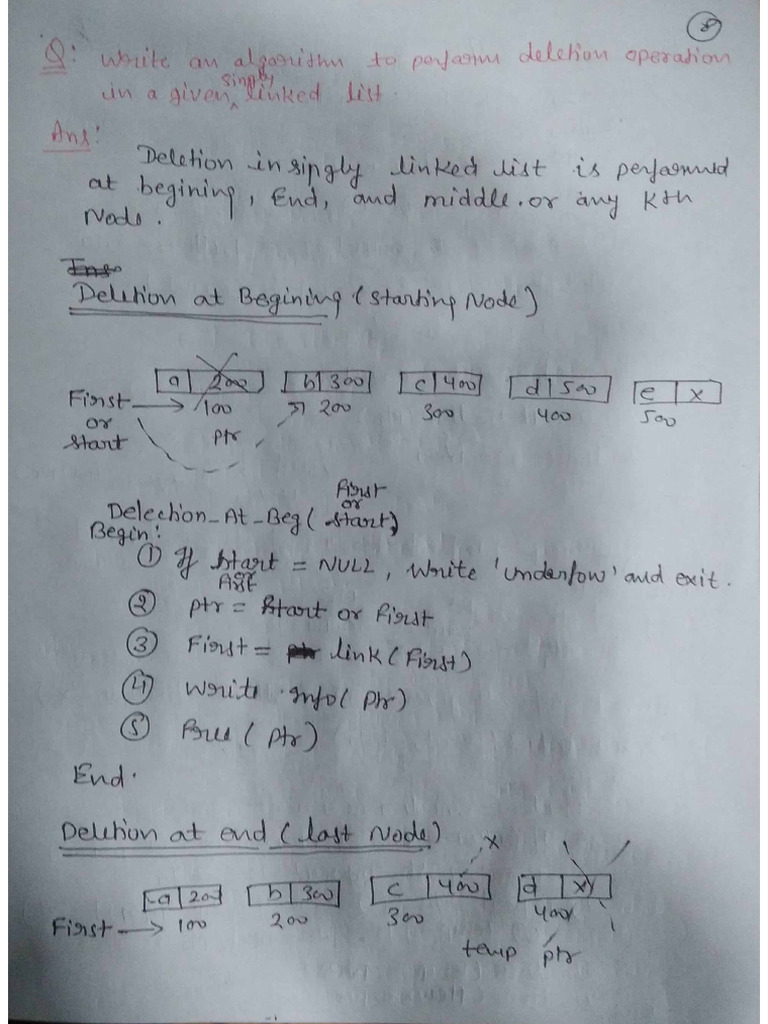 8
Q: Write an algorithm to perform deletion operation
in a given singly linked list.
Ans:
Deletion in singly linked list is performed
at begining, End, and middle. or any Kth
Node.
Deletion at Begining (Starting Node)
a 200 b 300 c 400 d 500 e x
First → 100 200 300 400 500
or
Start
ptr
First
or
Delection_At_Beg( Start)
Begin:
① If Start = NULL, Write 'underflow' and exit.
② ptr = Start or First
③ First = link (First)
④ Write info( Ptr)
⑤ Free ( Ptr)
End.
Deletion at end ( last Node)
x
a 200 b 300 c 400 d x
First → 100 200 300 400
temp ptr